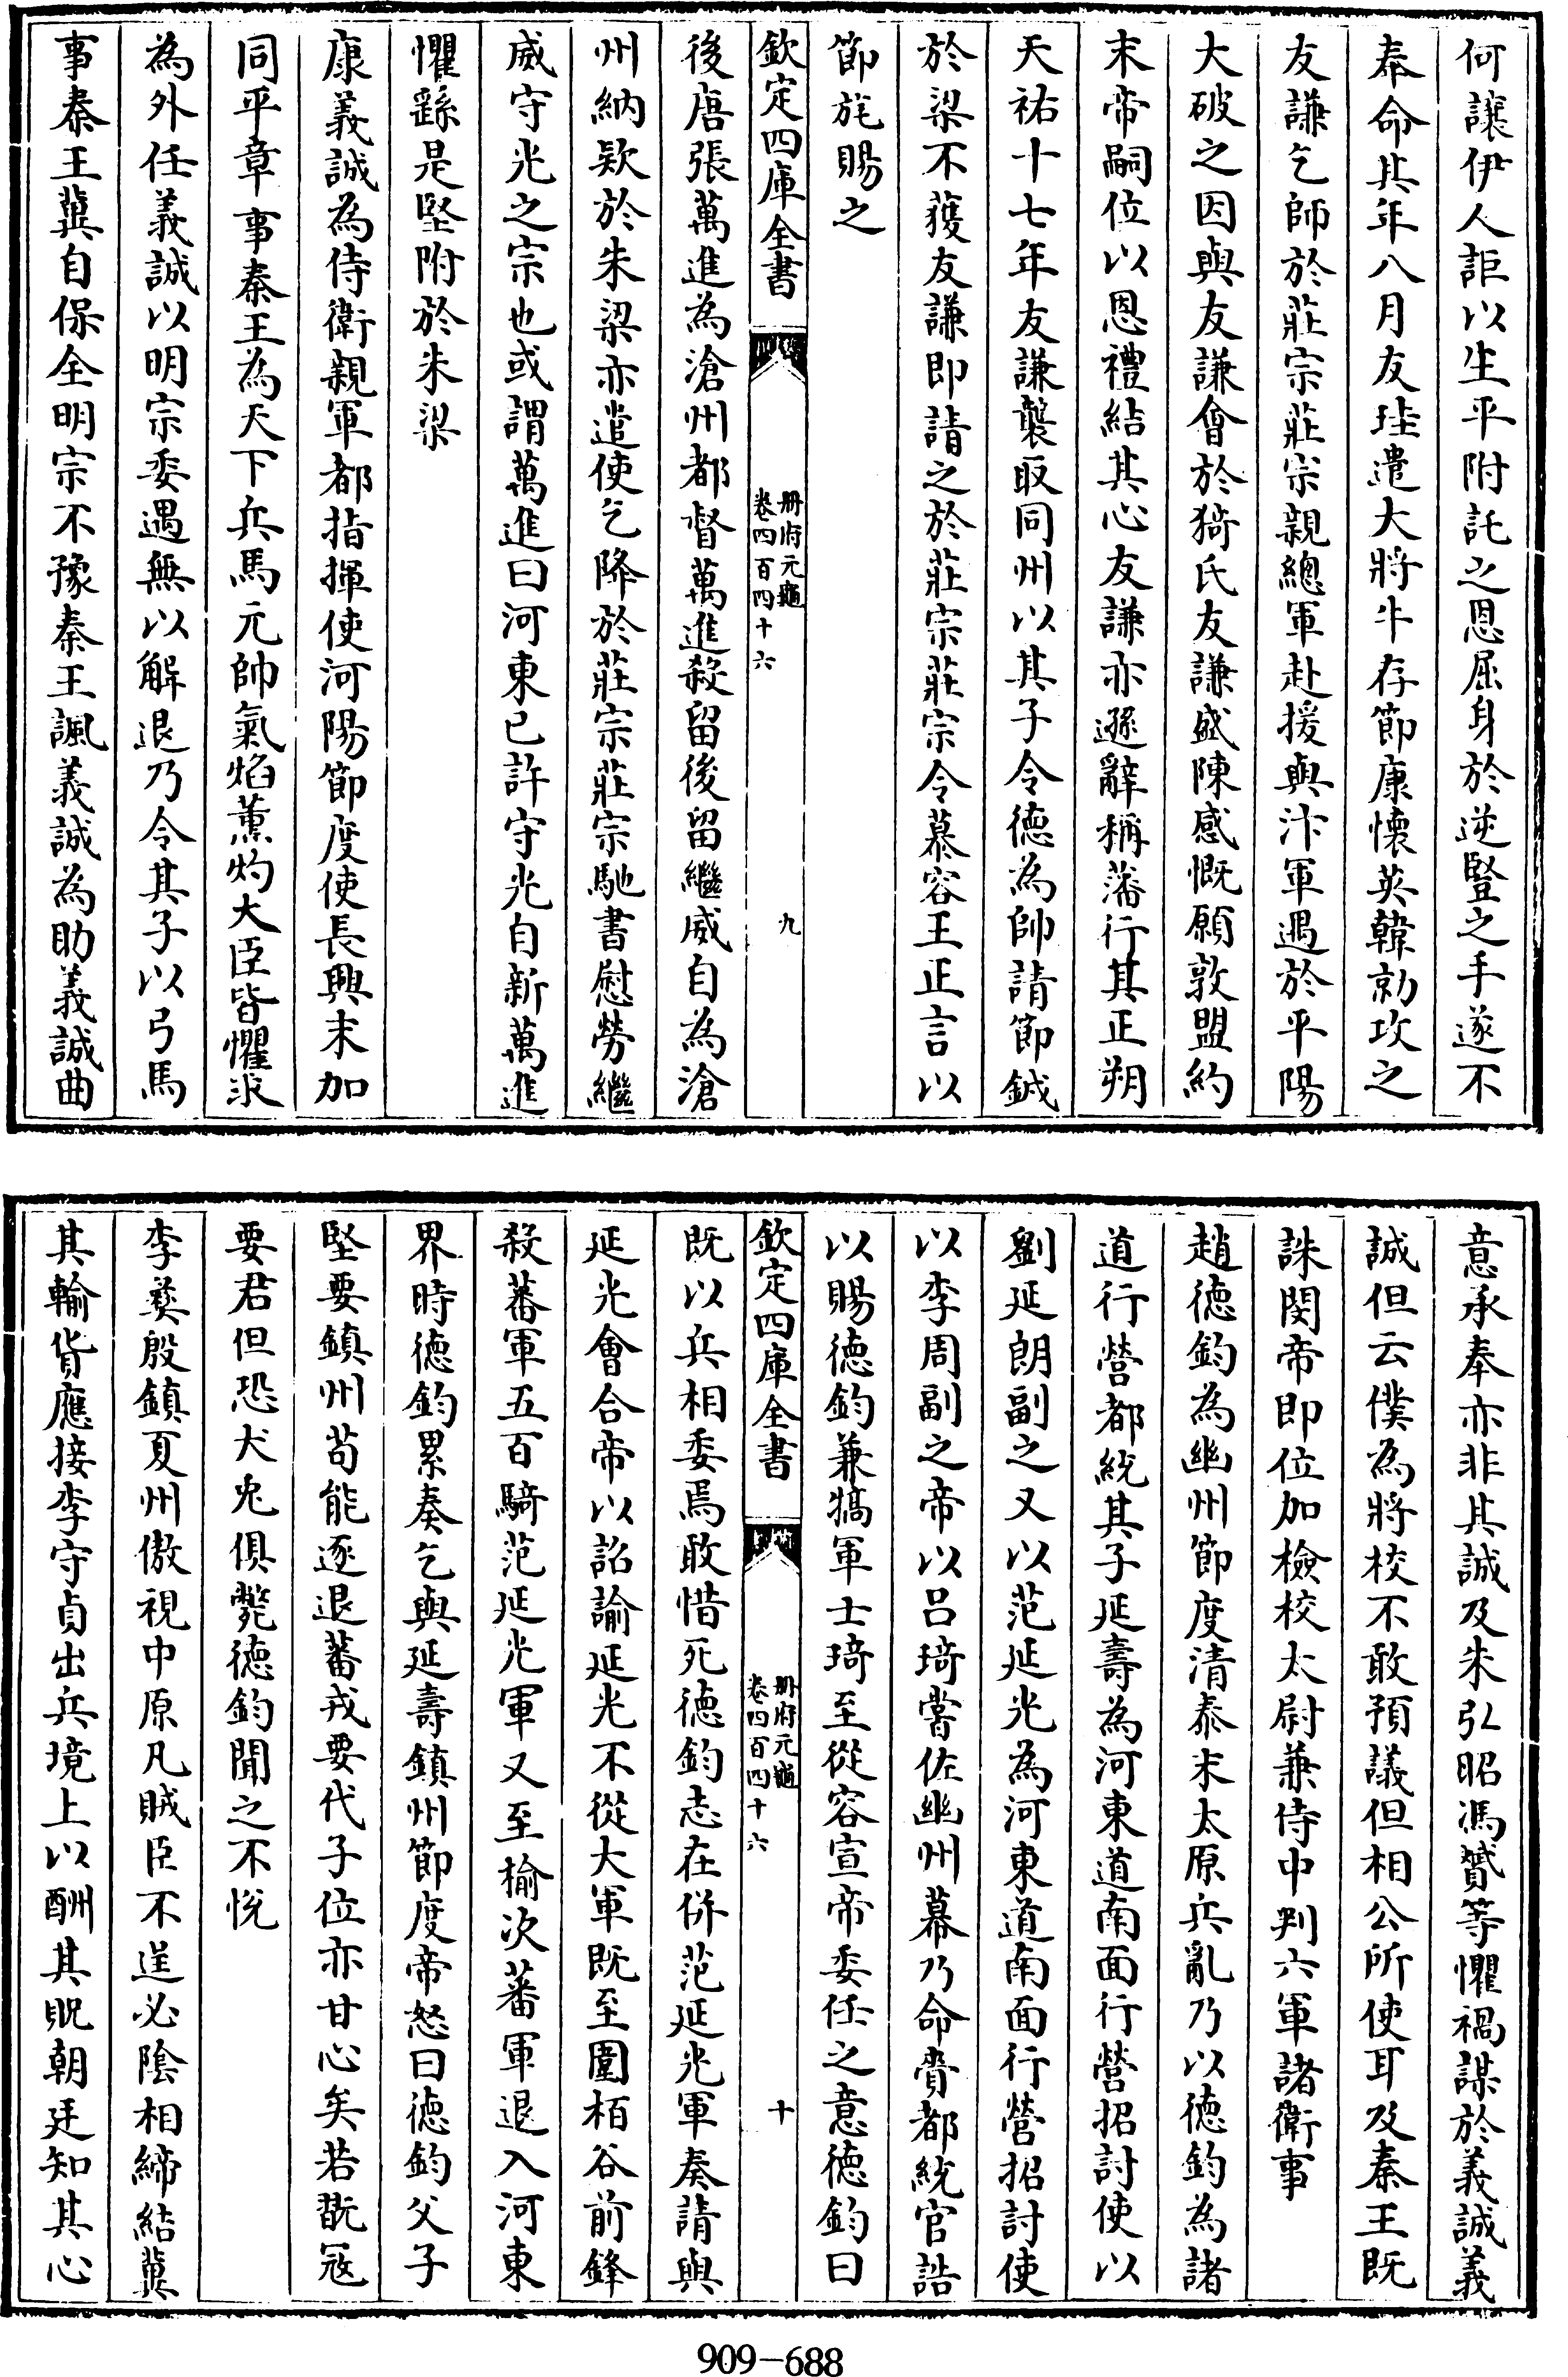 何讓伊人詎以生平附託之恩屈身於逆豎之手遂不
奉命其年八月友珪遣大將牛存節康懷英韓勍攻之
友謙乞師於莊宗莊宗親總軍赴援與汴軍遇於平陽
大破之因與友謙會於猗氏友謙盛陳感慨願敦盟約
末帝嗣位以恩禮結其心友謙亦遜辭稱藩行其正朔
天祐十七年友謙襲取同州以其子令德為帥請節鉞
於梁不獲友謙即請之於莊宗莊宗令慕容王正言以
節旄賜之
欽定四庫全書
冊府元龜
卷四百四十六
九
後唐張萬進為滄州都督萬進殺留後留繼威自為滄
州納欵於朱梁亦遣使乞降於莊宗莊宗馳書慰勞繼
威守光之宗也或謂萬進曰河東已許守光自新萬進
懼繇是堅附於朱梁
康義誠為侍衛親軍都指揮使河陽節度使長興末加
同平章事事秦王為天下兵馬元帥氣焰薰灼大臣皆懼求
為外任義誠以明宗委遇無以解退乃令其子以弓馬
事秦王冀自保全明宗不豫秦王諷義誠為助義誠曲
意承奉亦非其誠及朱弘昭馮贇等懼禍謀於義誠義
誠但云僕為將校不敢預議但相公所使耳及秦王既
誅閔帝即位加檢校太尉兼侍中判六軍諸衛事
趙德鈞為幽州節度清泰末太原兵亂乃以德鈞為諸
道行營都統其子延壽為河東道南面行營招討使以
劉延朗副之又以范延光為河東道南面行營招討使
以李周副之帝以呂琦嘗佐幽州幕乃命賫都統官誥
以賜德鈞兼犒軍士琦至從容宣帝委任之意德鈞曰
欽定四庫全書
冊府元龜
卷四百四十六
十
既以兵相委焉敢惜死德鈞志在併范延光軍奏請與
延光會合帝以詔諭延光不從大軍既至團栢谷前鋒
殺蕃軍五百騎范延光軍又至榆次蕃軍退入河東
界時德鈞累奏乞與延壽鎮州節度帝怒曰德鈞父子
堅要鎮州苟能逐退蕃戎要代子位亦甘心矣若翫寇
要君但恐犬兔俱斃德鈞聞之不悅
李彞殷鎮夏州傲視中原凡賊臣不逞必陰相締結冀
其輸貨應接李守貞出兵境上以酬其貺朝廷知其心
909-688